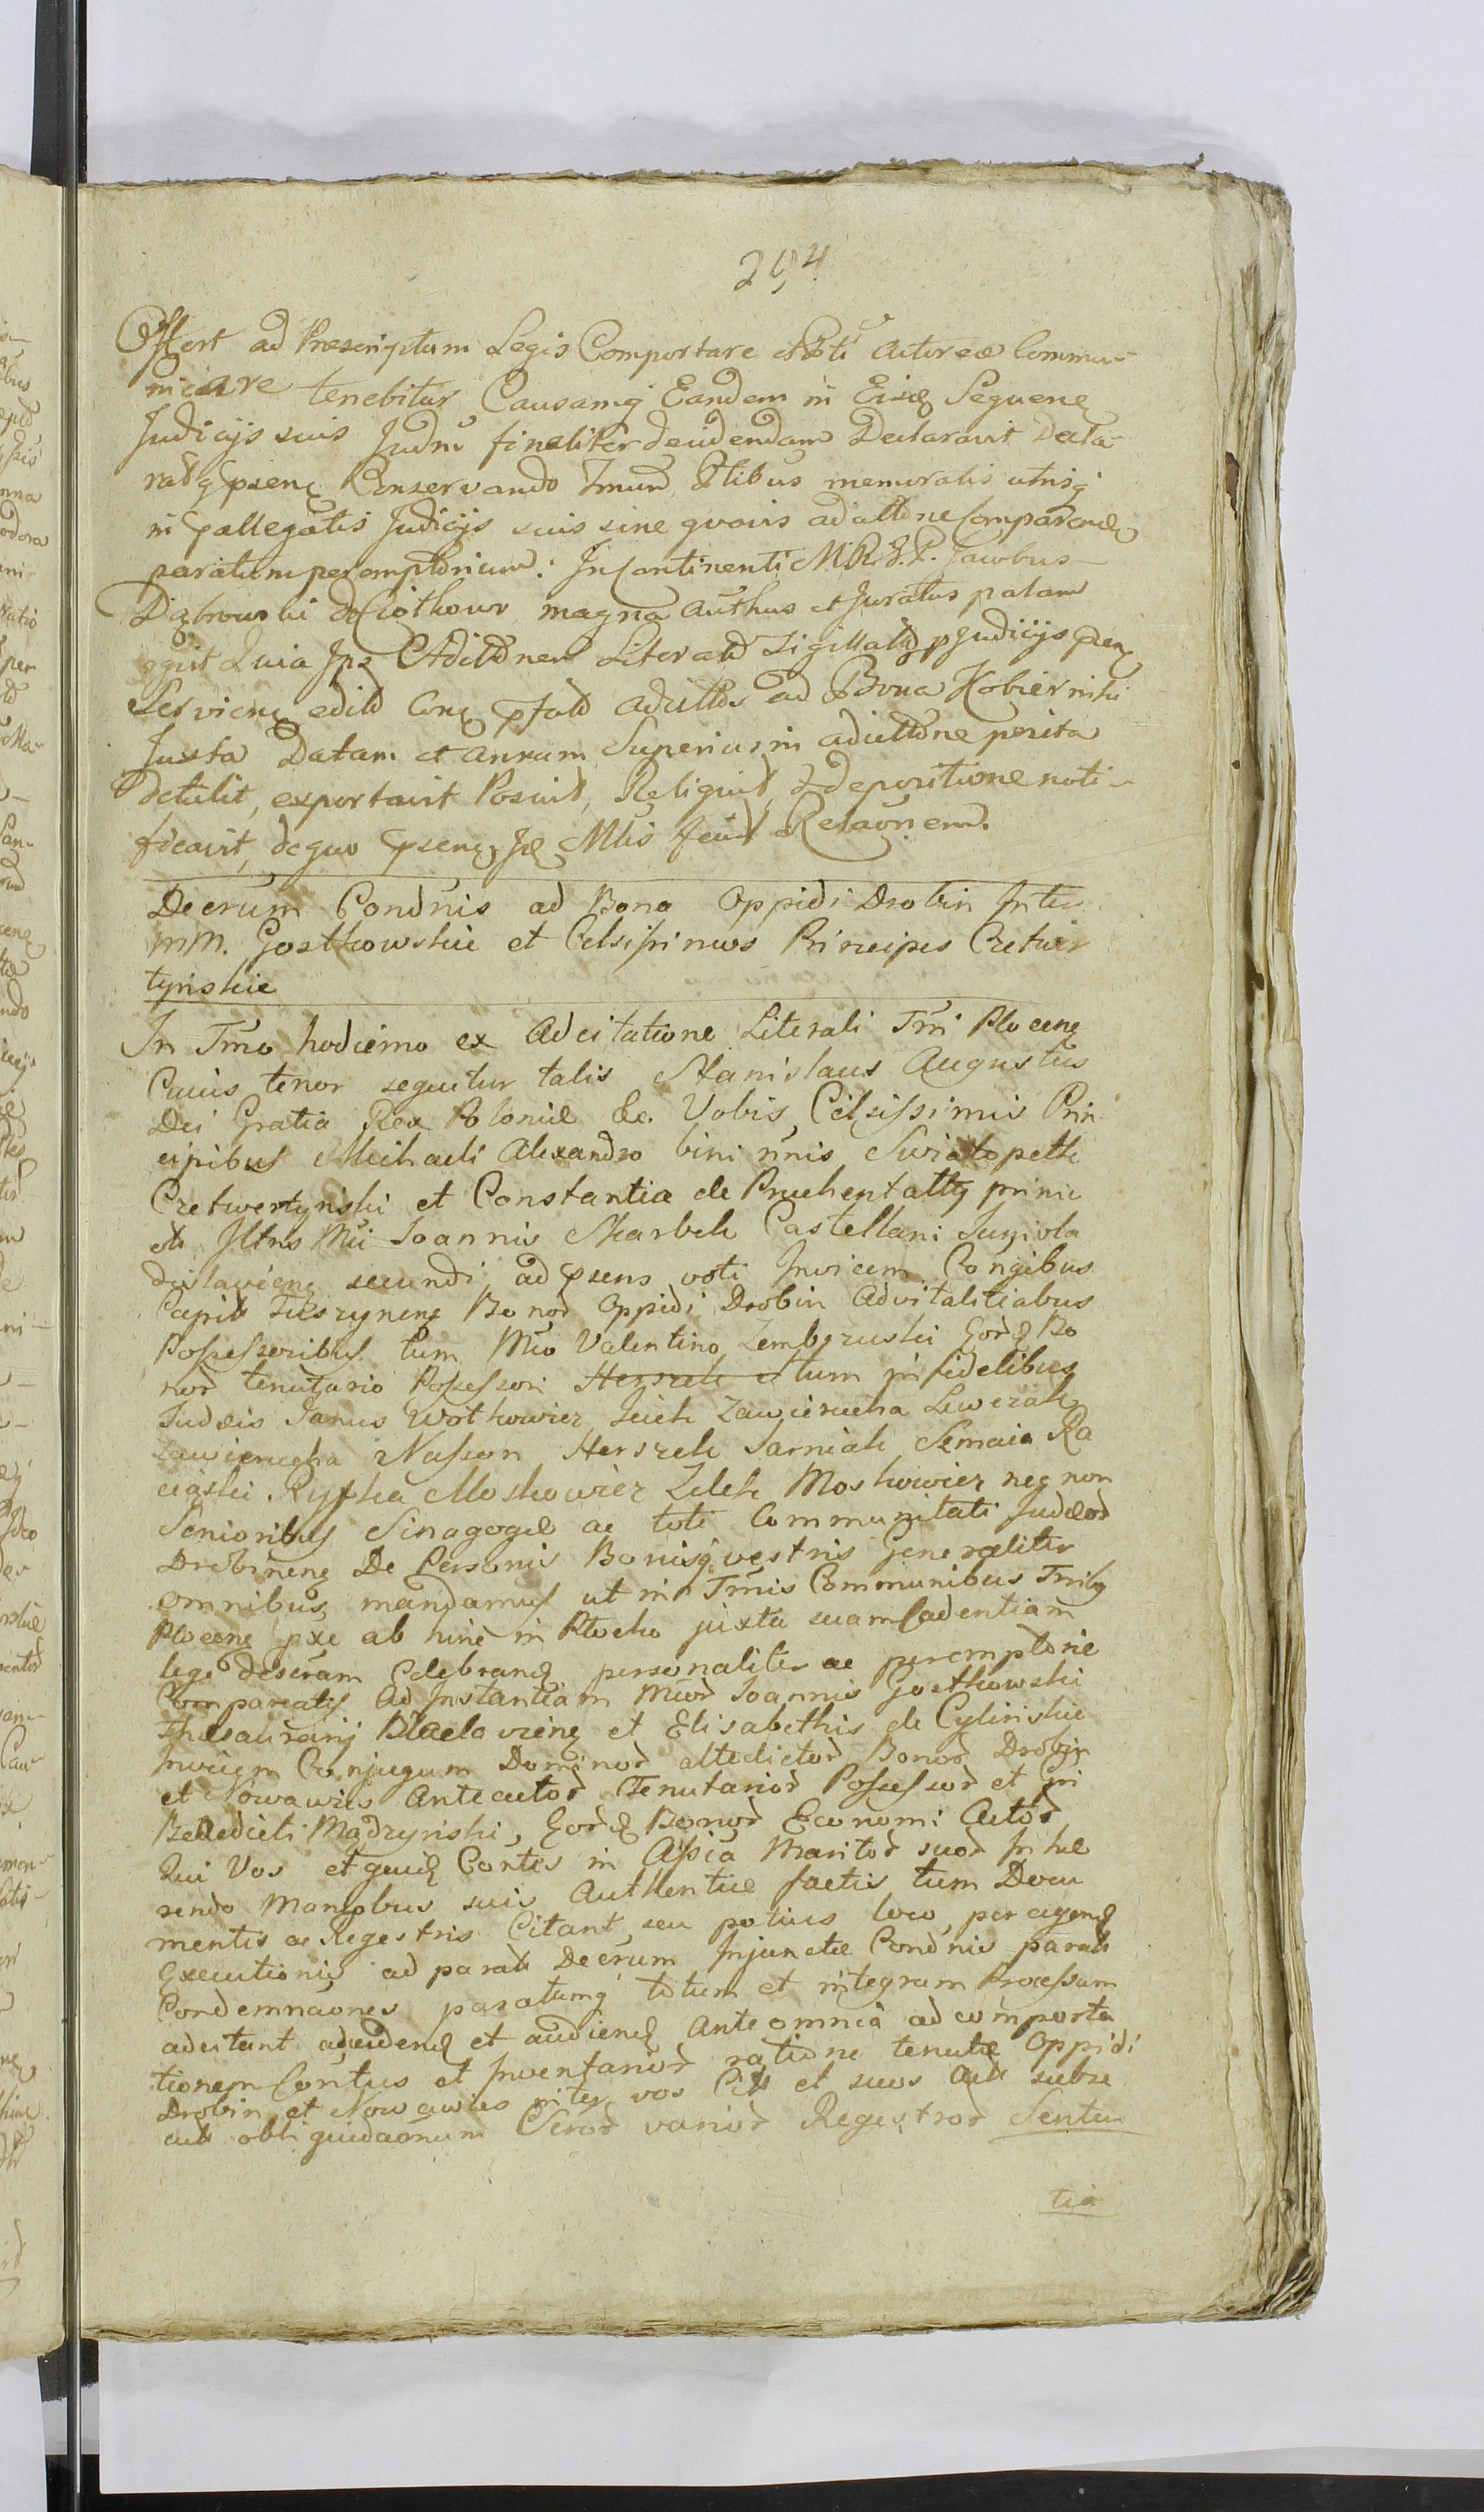 254
Offert ad Prescriptum Legis Comportare et Pti actoreæ Commu-
nicare tenebitur Causamq Eandem in Eisd Sequenę
Judicijs suis Judm finaliter decidendam Declaravit Decla-
ratq psenę Conservando Tmum Ptibus memoratis utrisq
in pallegatis Judicijs suis sine quavis adcittone Comparend
paratum peremptorium. In Continenti M.R.G.P. Jacobus
Dąbrowski de Ciołkowo magna Authus et Juratus palam
egit Quia Ips Adcittonem Literatd sigillatą p Judicijs psenę
Servienę edild Conę pfatd adcittos ad Bona Kobierniki
Juxta Datam et annum Superius in adcittone posita
detulit, exportavit Posuit, Reliquit, & depositione noti-
ficavit, de quo psenę Jd Mtis fecit Relaonem.
Decrum Condnis ad Bona Oppidi Drobin Inter
MM. Gostkowskie et Celsissimos Principes Czetwer
tyńskie
In Tmo hodierno ex Adcitatione Literali Tri Plocenę
Cuius tenor sequitur talis Stanislaus Augustus
Dei Gratia Rex Poloniæ &c. Vobis Celsissimis Prin
cipibus Michaeli Alexandro bini nnis Swiatopełk
Czetwertyński et Constantia de Pruchent attą primi
ete Illtris Mci Joannis Skarbek Castellani Junivla
dislavienę secundi, ad psens voti Invicem Congibus
Capit Fuszynenę Bonor Oppidi Drobin Advitalitiabus
Possessoribus tum Mco Valentino Zembrzuski Eord Bo
nor tenutario Possessori Herszek et tum infidelibus
Judæis Janus Wołkowicz Jcich Zawierucha Lewczak
Zawierucha Nasson Herszek Sarniak Semaia Ra
ciąski Ryfka Moskowicz Zelek Moskowicz nec non
Senioribus Sinagogæ ac toti Communitati Judæor
Drobinenę De Personis Bonisq vestris Generaliter
omnibus mandamus ut in Tmis Communibus Tribę
Plocenę pxe ab hinc in Płocko juxta suam Cadentiam
lege descram Celebrand personaliter ac peremptorie
Compareatis Ad Instantiam Mcor Joannis Gostkowski
Thesaurarij Wladaviénę et Elisabethis de Cyliński
Invicem Conjugum Dominor altedictor Bonor Drobin
et Nowawies Anteactor Tenutarior Possessor et Gri
Benedicti Mądrzyński, Eord Bonor Economi Actor
Qui Vos et quid Contes in Assia Maritor suor Inhæ
rendo Manibus suis Authentice factis tum Docu
mentis ac Regestris Citant seu potius loco peragend
Executionis ad parate Decrum Injunctæ Condnis parate
Condemnaones paratumq totum et integrum Processum
adcitant adcidend et audiend Ante omnia ad comporta
tionem Contus et Inventarior ratione tenutæ Oppidi
Drobin et Nowawies inter vos Cits et suos Acts subse
cuts obliquidaonum Ceror varior Regestror Senten
tia